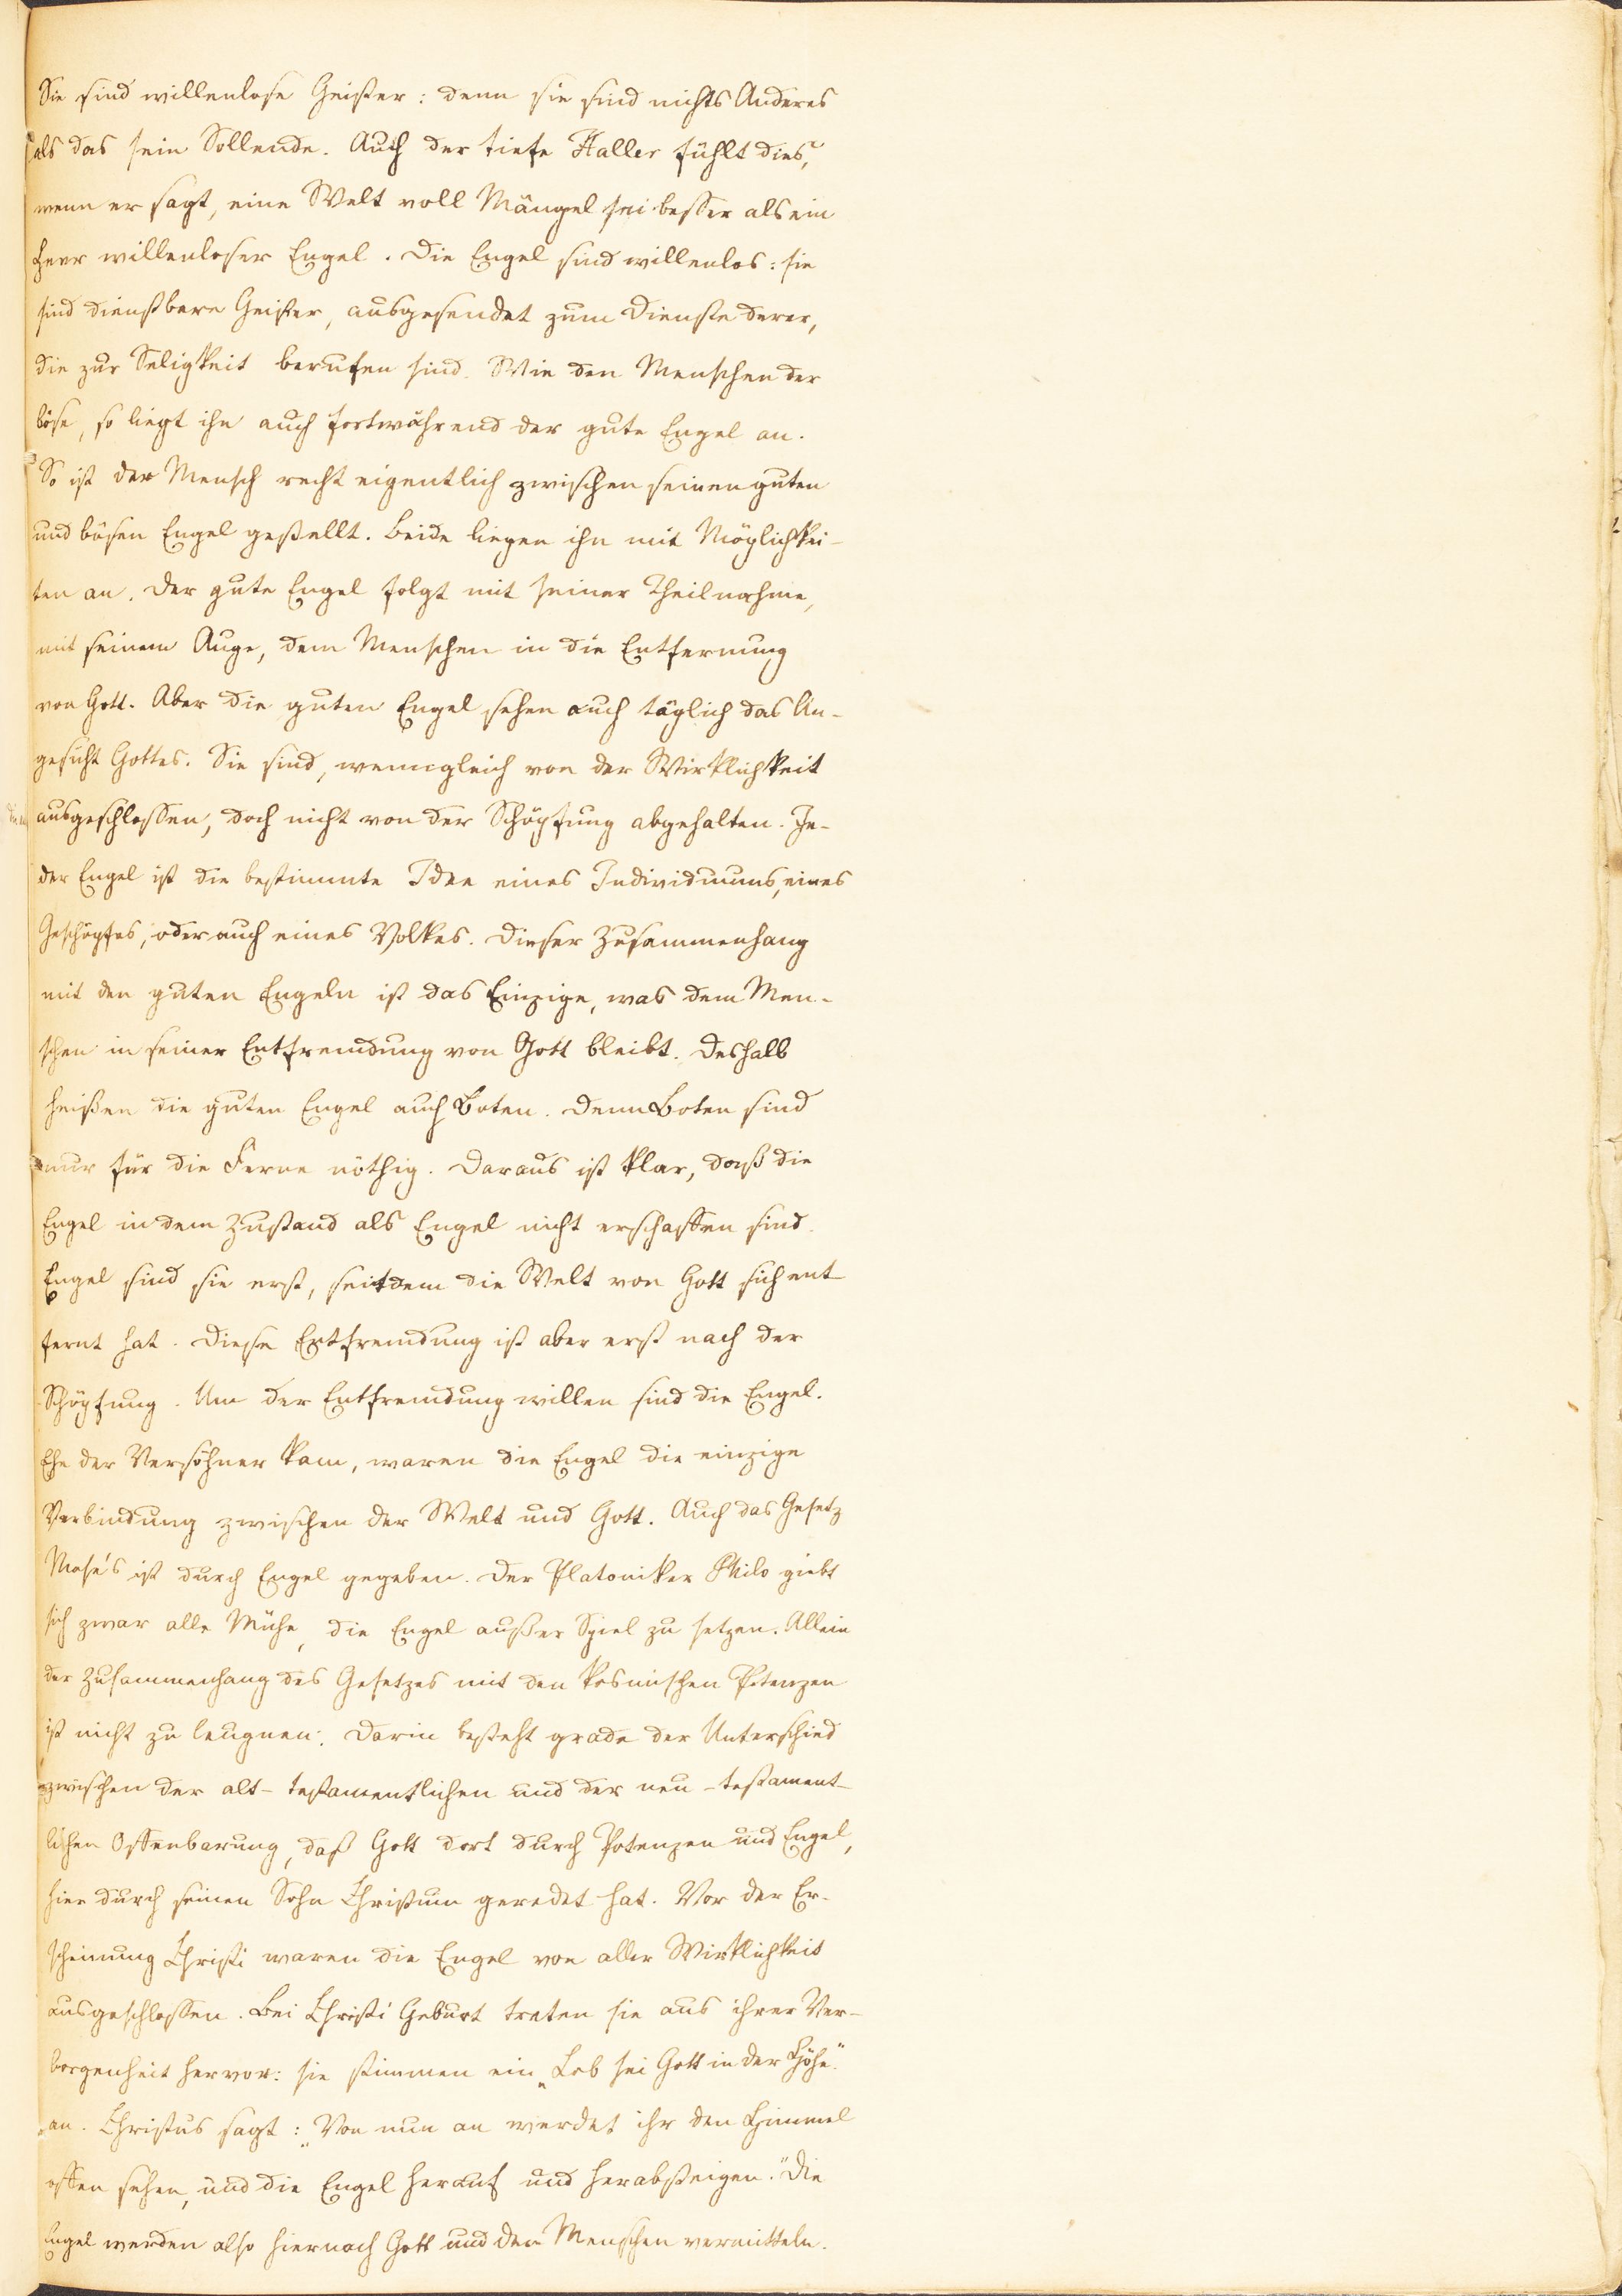 Sie sind willenlose Geister: denn sie sind nichts Anderes
als das sein Sollende. Auch der tiefe Haller fühlt dies,
wenn er sagt, eine Welt voll Mängel sei besser als ein
Heer willenloser Engel. Die Engel sind willenlos: sie
sind dienstbare Geister, ausgesendet zum Dienste derer,
die zur Seligkeit berufen sind. Wie den Menschen der
böse, so liegt ihn auch fortwährend der gute Engel an.
So ist der Mensch recht eigentlich zwischen seinen guten
und bösen Engel gestellt. Beide liegen ihn mit Möglichkei-
ten an. Der gute Engel folgt mit seiner Theilnahme,
mit seinem Auge, dem Menschen in die Entfernung
von Gott. Aber die guten Engel sehen auch täglich das An-
gesicht Gottes. Sie sind, wenngleich von der Wirklichkeit
ausgeschlossen, doch nicht von der Schöpfung abgehalten. Je-
der Engel ist die bestimmte Idee eines Individuums, eines
Geschöpfes, oder auch eines Volkes. Dieser Zusammenhang
mit den guten Engeln ist das Einzige, was dem Men-
schen in seiner Entfremdung von Gott bleibt. Deshalb
heißen die guten Engel auch Boten. Denn Boten sind
nur für die Ferne nöthig. Daraus ist klar, daß die
Engel in dem Zustand als Engel nicht erschaffen sind.
Engel sind sie erst, seitdem die Welt von Gott sich ent-
fernt hat. Diese Entfremdung ist aber erst nach der
Schöpfung. Um der Entfremdung willen sind die Engel.
Ehe der Versöhner kam, waren die Engel die einzige
Verbindung zwischen der Welt und Gott. Auch das Gesetz
Mose's ist durch Engel gegeben. Der Platoniker Philo giebt
sich zwar alle Mühe, die Engel außer Spiel zu setzen. Allein
der Zusammenhang des Gesetzes mit den kosmischen Potenzen
ist nicht zu leugnen. Darin besteht grade der Unterschied
zwischen der alt-testamentlichen und der neu-testament-
lichen Offenbarung, daß Gott dort durch Potenzen und Engel,
hier durch seinen Sohn Christum geredet hat. Vor der Er-
scheinung Christi waren die Engel von aller Wirklichkeit
ausgeschlossen. Bei Christi Geburt treten sie aus ihrer Ver-
borgenheit hervor: sie stimmen ein „Lob sei Gott in der Höhe"
an. Christus sagt: „Von nun an werdet ihr den Himmel
offen sehen, und die Engel herauf und herabsteigen." Die
Engel werden also hiernach Gott und den Menschen vermitteln.